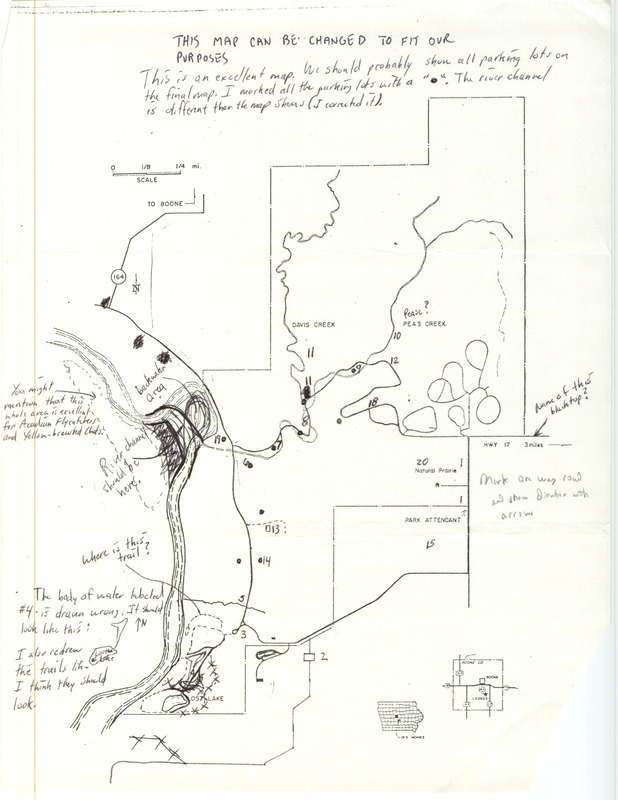 THIS MAP CAN BE CHANGED TO FIT OUR
PURPOSES
This is an excellent map. We should probably show all parking lots on
the final map. I marked all the parking lots with a "●". The river channel
is different than the map shows (I corrected it).
0 1/8 1/4 mi.
SCALE
TO BOONE
164
N
DAVIS CREEK
Pease?
PEAS CREEK
10
11
11
12
9
18
8
backwater
area
You might
mention that this
whole area is excellent
for Acadian Flycatchers
and Yellow-breasted Chats.
River channel
should be
here.
19
6
name of this
blacktop?
HWY 17 3 miles
20
Natural Prairie
1
Mark one way road
and show direction with
arrows
PARK ATTENDANT
13
14
15
where is this
trail?
5
3
2
The body of water labeled
#4 is drawn wrong. It should
look like this:
N
I also redrew
the trails like
I think they should
look.
LOST LAKE
BOONE CO
BOONE
LEDGES
DES MOINES